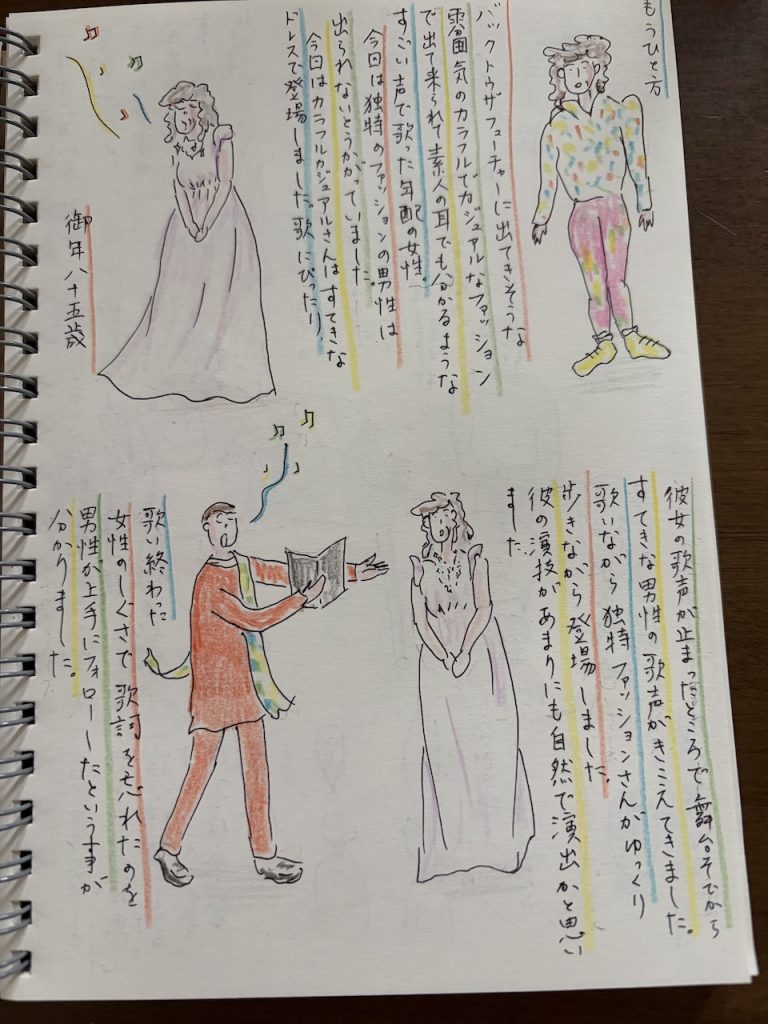 もうひと方
バックトゥザフューチャーに出てきそうな
雰囲気のカラフルでカジュアルなファッション
で出て来られて素人の耳でも分かるような
すごい声で歌った年配の女性。
今日は独特のファッションの男性は
出られないとうかがっていました。
今日はカラフルカジュアルさんはすてきな
ドレスで登場しました。歌にぴったり
御年八十五歳
彼女の歌声が止まったところで舞台そでから
すてきな男性の歌声がきこえてきました。
歌いながら独特ファッションさんがゆっくり
歩きながら登場しました。
彼の演技があまりにも自然で演出かと思い
ました。
歌い終わった
女性のしぐさで歌詞を忘れたのを
男性が上手にフォローしたという事が
分かりました。